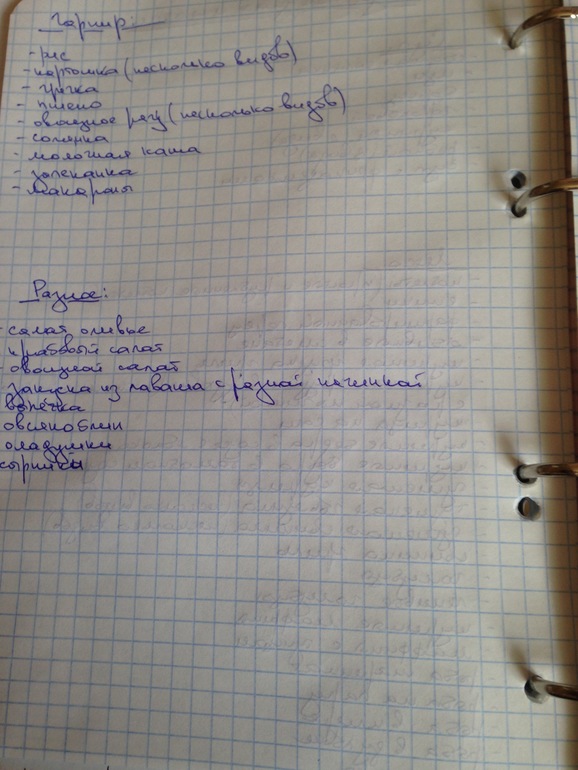 Гарнир:
- рис
- картошка (несколько видов)
- гречка
- пшено
- овощное рагу (несколько видов)
- солянка
- молочная каша
- запеканка
- макароны
Разное:
- салат оливье
- крабовый салат
- овощной салат
закуска из лаваша с разной начинкой
выпечка
овсяноблин
оладушки
сырники